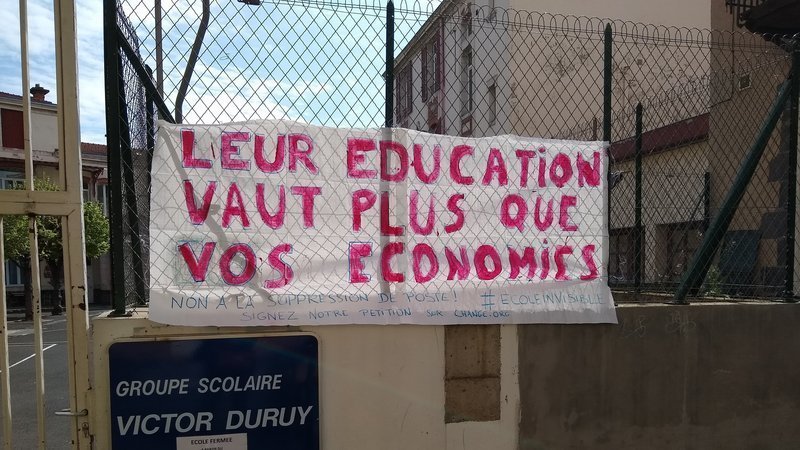 LEUR EDUCATION
VAUT PLUS QUE
VOS ECONOMIES
NON A LA SUPPRESSION DE POSTE! #ECOLEINVISIBLE
SIGNEZ NOTRE PETITION SUR CHANGE.ORG
GROUPE SCOLAIRE
VICTOR DURUY
ECOLE FERMEE